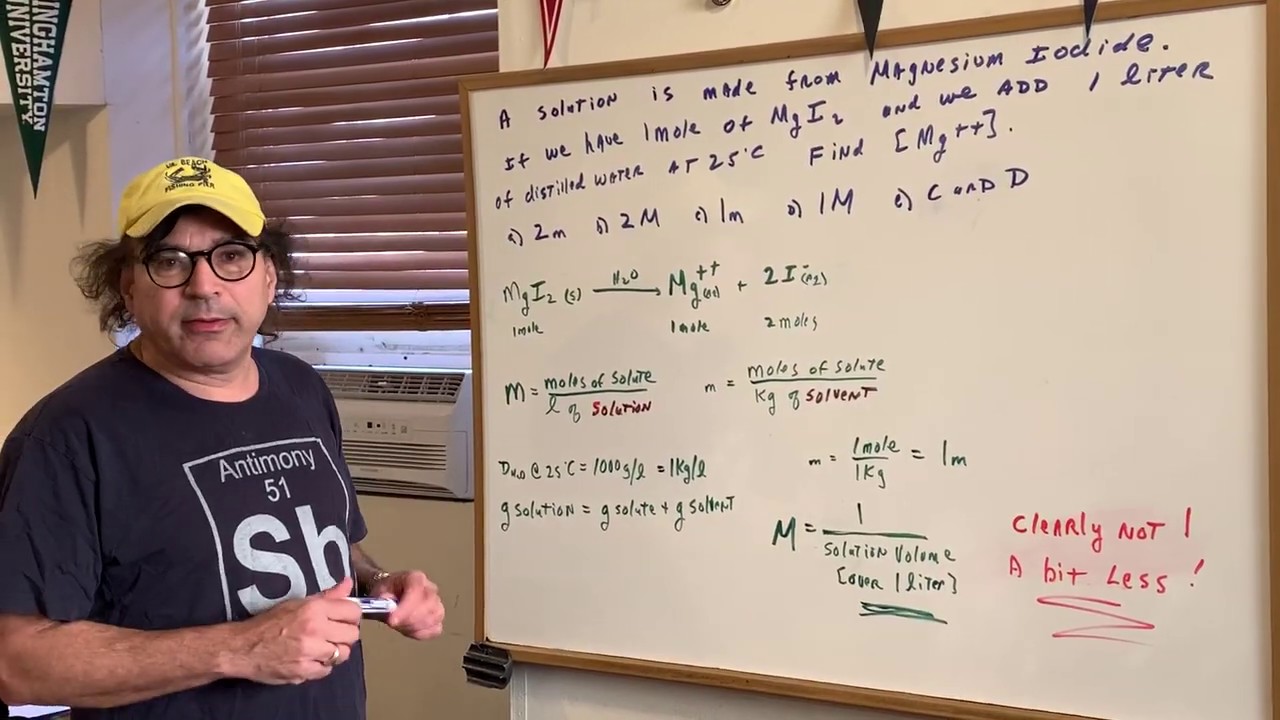 INGHAMTON
UNIVERSITY
BEACH
FISHING PIER
Antimony
51
Sb
A solution is made from Magnesium Iodide.
If we have 1 mole of MgI2 and we ADD 1 liter
of distilled water AT 25°C Find [Mg++].
a) 2m b) 2M c) 1m d) 1M e) C and D
MgI2 (s) H2O Mg++(aq) + 2I-(aq)
1mole 1mole 2 moles
M = moles of solute / l of solution
m = moles of solute / Kg of solvent
DH2O @ 25°C = 1000g/l = 1Kg/l
g solution = g solute + g solvent
m = 1mole / 1Kg = 1m
M = 1 / solution volume
[over 1 liter]
Clearly NOT 1
A bit Less!